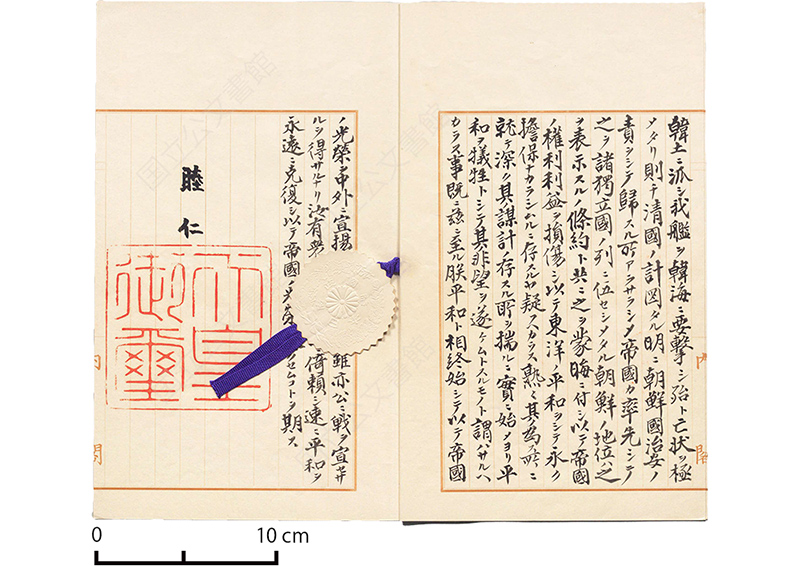 韓土ニ派シ我艦ヲ韓海ニ要撃シ殆ト亡状ヲ極
メタリ則チ清國ノ計圖タル明ニ朝鮮國治安ノ
責ヲシテ歸スル所アラサラシメ帝國カ率先シテ
之ヲ諸獨立國ノ列ニ伍セシメタル朝鮮ノ地位ハ之
ヲ表示スルノ條約ト共ニ之ヲ蒙晦ニ付シ以テ帝國
ノ權利利益ヲ損傷シ以テ東洋ノ平和ヲシテ永ク
擔保ナカラシムルニ存スルヤ疑フヘカラス熟其ノ為ス所ニ
就テ深ク其謀計ノ存スル所ヲ揣ルニ實ニ始メヨリ平
和ヲ犠牲トシテ其非望ヲ遂ケムトスルモノト謂ハサルヘ
カラス事既ニ茲ニ至ル朕平和ト相終始シテ以テ帝國
内閣
ノ光榮ヲ中外ニ宣揚 雖亦公ニ戰ヲ宣セサ
ルヲ得サルナリ汝有衆 倚頼シ速ニ平和ヲ
永遠ニ克復シ以テ帝國ノ セムコトヲ期ス
睦仁
天皇
御璽
内閣
国立公文書館
0 10 cm